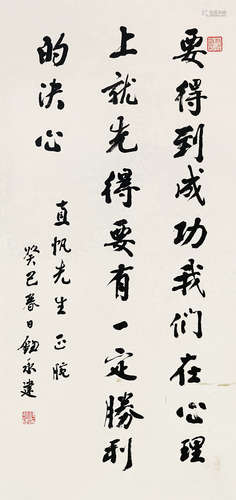 要得到成功我们在心理
上就先得要有一定勝利
的决心
直帆先生正腕
癸巳春日鈕永建